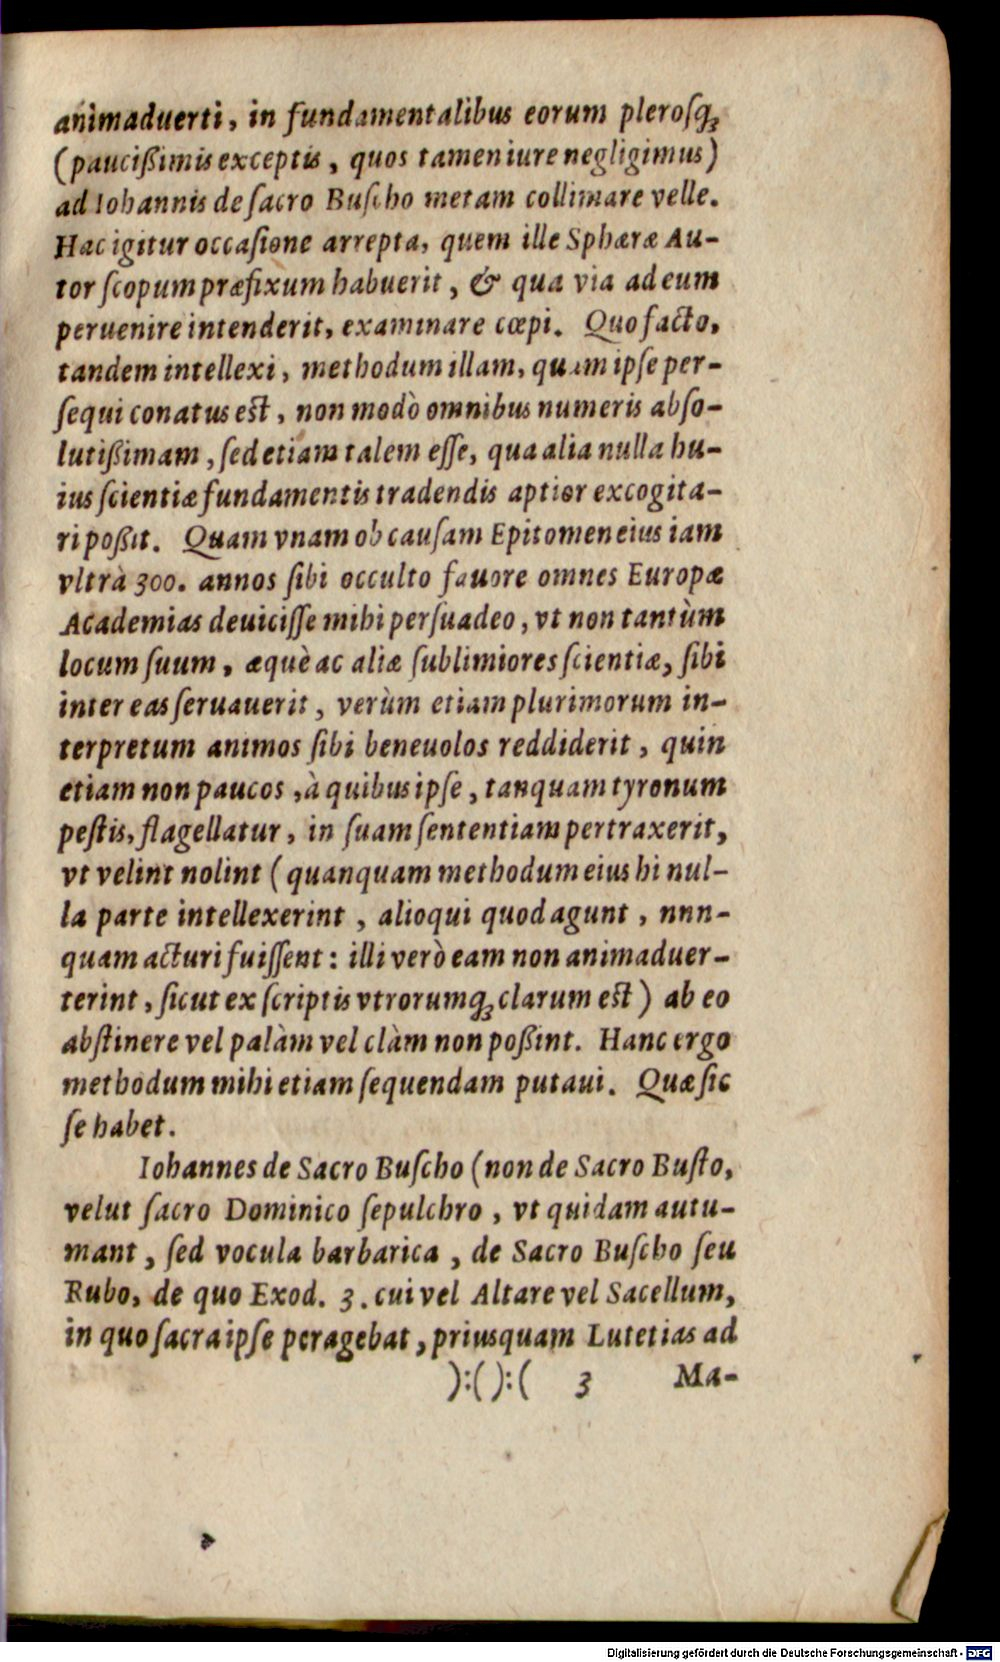 animaduerti, in fundamentalibus eorum plerosꝗ́;
(paucißimis exceptis, quos tamen iure negligimus)
ad Iohannis de ſacro Buſcho metam collimare velle.
Hac igitur occaſione arrepta, quem ille Sphæræ Au-
tor ſcopum præfixum habuerit, & qua via ad eum
peruenire intenderit, examinare cœpi. Quo facto,
tandem intellexi, methodum illam, quam ipſe per-
ſequi conatus eſt, non modò omnibus numeris abſo-
lutißimam, ſed etiam talem eſſe, qua alia nulla hu-
ius ſcientiæ fundamentis tradendis aptior excogita-
ri poßit. Quam vnam ob cauſam Epitomen eius iam
vltrà 300. annos ſibi occulto fauore omnes Europæ
Academias deuiciſſe mihi perſuadeo, vt non tantùm
locum ſuum, æquè ac aliæ ſublimiores ſcientiæ, ſibi
inter eas ſeruauerit, verùm etiam plurimorum in-
terpretum animos ſibi beneuolos reddiderit, quin
etiam non paucos, à quibus ipſe, tanquam tyronum
peſtis, flagellatur, in ſuam ſententiam pertraxerit,
vt velint nolint (quanquam methodum eius hi nul-
la parte intellexerint, alioqui quod agunt, nnn-
quam acturi fuiſſent: illi verò eam non animaduer-
terint, ſicut ex ſcriptis vtrorumq; clarum eſt) ab eo
abſtinere vel palàm vel clàm non poßint. Hanc ergo
methodum mihi etiam ſequendam putaui. Quæ ſic
ſe habet.
Iohannes de Sacro Buſcho (non de Sacro Buſto,
velut ſacro Dominico ſepulchro, vt quidam autu-
mant, ſed vocula barbarica, de Sacro Buſcho ſeu
Rubo, de quo Exod. 3. cui vel Altare vel Sacellum,
in quo ſacra ipſe peragebat, priusquam Lutetias ad
):( ):( 3 Ma-
Digitalisierung gefördert durch die Deutsche Forschungsgemeinschaft - DFG